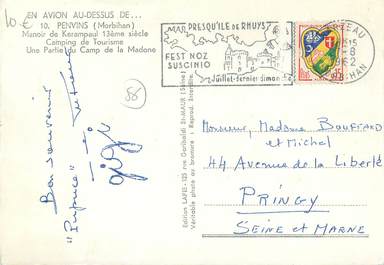 EN AVION AU-DESSUS DE...
10. PENVINS (Morbihan)
Manoir de Kerampaul 13ème siècle
Camping de Tourisme
Une Partie du Camp de la Madone
10 €
56
MAR PRESQU'ILE DE RHUYS
FEST NOZ
SUSCINIO
Juillet
1962
BIHAN
Bon souvenir
gigi
Edition LAPIE - 125 rue Garibaldi ST-MAUR (Seine)
Véritable photo au bromure : Reprod. Interdite.
Monsieur, Madame
et Michel
44 Avenue de la Liberté
PRINGY
SEINE et MARNE